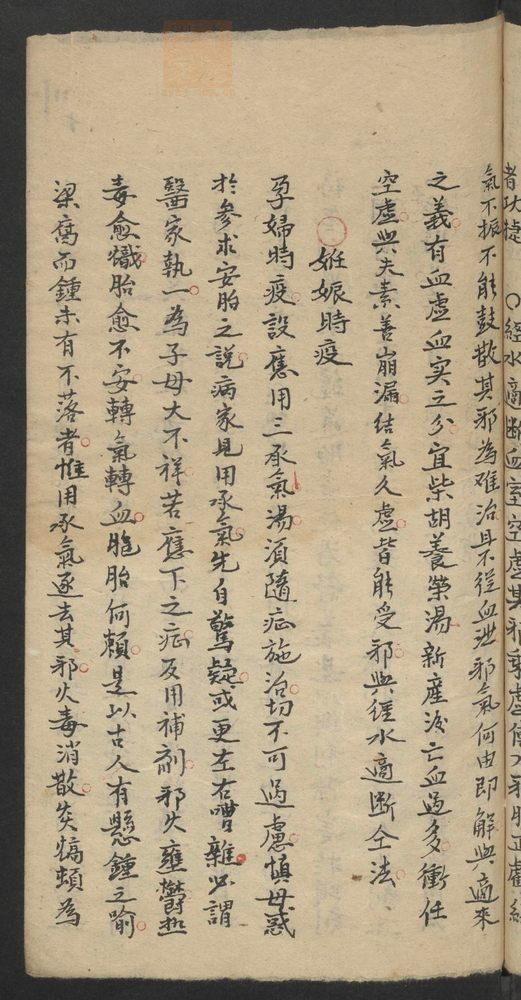 者功捷 〇經水適斷血室空虛其邪乘虛傳入邪勝正虧經
氣不振不能鼓散其邪為难治且不從血泄邪氣何由即解與適來
之義有血虛血实之分宜柴胡養榮湯新產後亡血過多衝任
空虛與夫素善崩漏結氣久虛皆能受邪與經水適斷仝法
三 姙娠時疫
孕婦時疫設應用三承氣湯須隨症施治切不可過慮慎毋惑
於參求安胎之說病家見用承氣先自驚疑或更左右嘈雜必謂
醫家執一為子母大不祥若應下之症反用補劑邪火壅鬱热
毒愈熾胎愈不安轉氣轉血胞胎何賴是以古人有懸鍾之喻
梁腐而鍾未有不落者惟用承氣逐去其邪火毒消散炎熇頓為